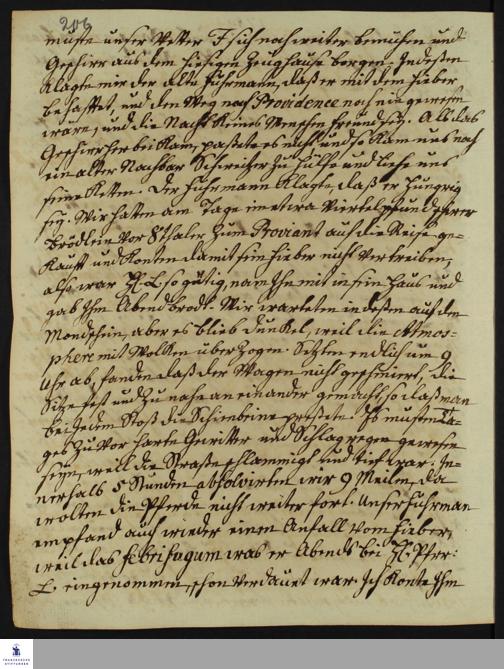 206
muste unser Vetter F sich noch weiter bemühen und
Geschirr aus dem hiesigen Zeughause borgen. Indeßen
klagte mir der alte Fuhrmann, daß er mit dem Fieber
behafftet, und den Weg nach Providence noch nie gewesen
wäre, und die Nacht keines Menschen Freund sey. All das
Geschirr herbei kam, paßete es nicht und so kam uns noch
ein alter Nachbar Schweitzer zu Hülfe und liehe uns
seine Ketten. Der Fuhrmann klagte, daß er hungrig
sey. Wir hatten am Tage ein etwa viertel pfund schwerer
Brödlein vor 8 thaler zum Proviant auf die Reise ge-
kaufft und konten damit sein Fieber nicht vertreiben,
also war H. L. so gütig, nam ihn mit in sein Haus und
gab ihm Abendbrodt. Wir warteten indeßen auf den
Mondschein, aber es blieb dunkel, weil die Atmos-
phere mit Wolken überzogen. Setzten endlich um 9
Uhr ab, fanden daß der Wagen nicht geschmiert, die
Sitze fest und zu nahe an einander gemacht, so daß man
bei jedem Stoß die Schienbeine preßete. Es musten Ta-
ges zuvor harte Gewitter und Schlagregen gewesen
seyn, weil die Straße schlammigt und tief war. In-
nerhalb 5 Stunden absolvirten wir 9 Meilen, da
wolten die Pferde nicht weiter fort. Unser Fuhrman
empfand auch wieder einen Anfall vom Fieber,
weil das febrifugum was er Abends bei H. Pfarr:
L. eingenommen, schon verdauet war. Ich konte ihm
FRANCKESCHE STIFTUNGEN